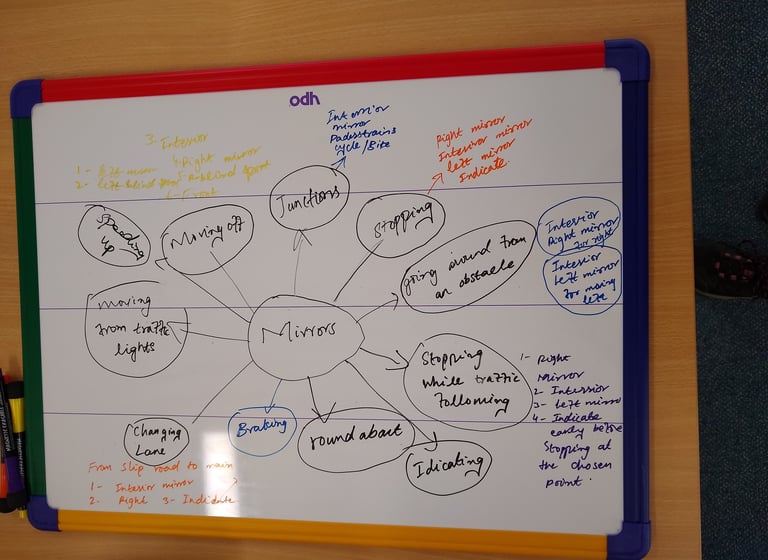 odh
3. Interior
1- left mirror 4. Right mirror
2- left blind spot 5- R-blind spot
6- Front
Interrior
mirror
Padesstrains
cycle/Bite
Right mirror
Interivor mirror
left mirror
Indicate.
Speeding
up
Moving off
Junctions
Stopping
going around from
an obstacle
Interior
Right mirror
for right
Interior
Left mirror
for moving
left
Moving
from traffic
lights
Mirrors
Stopping
while traffic
following
1- Right
Mirror
2- Interior
3- left mirror
4- Indicate
early before
Stopping at
the chosen
point.
Changing
Lane
Braking
roundabout
Idicating
From slip road to main
1- Interior mirror
2. Right 3- Indidate